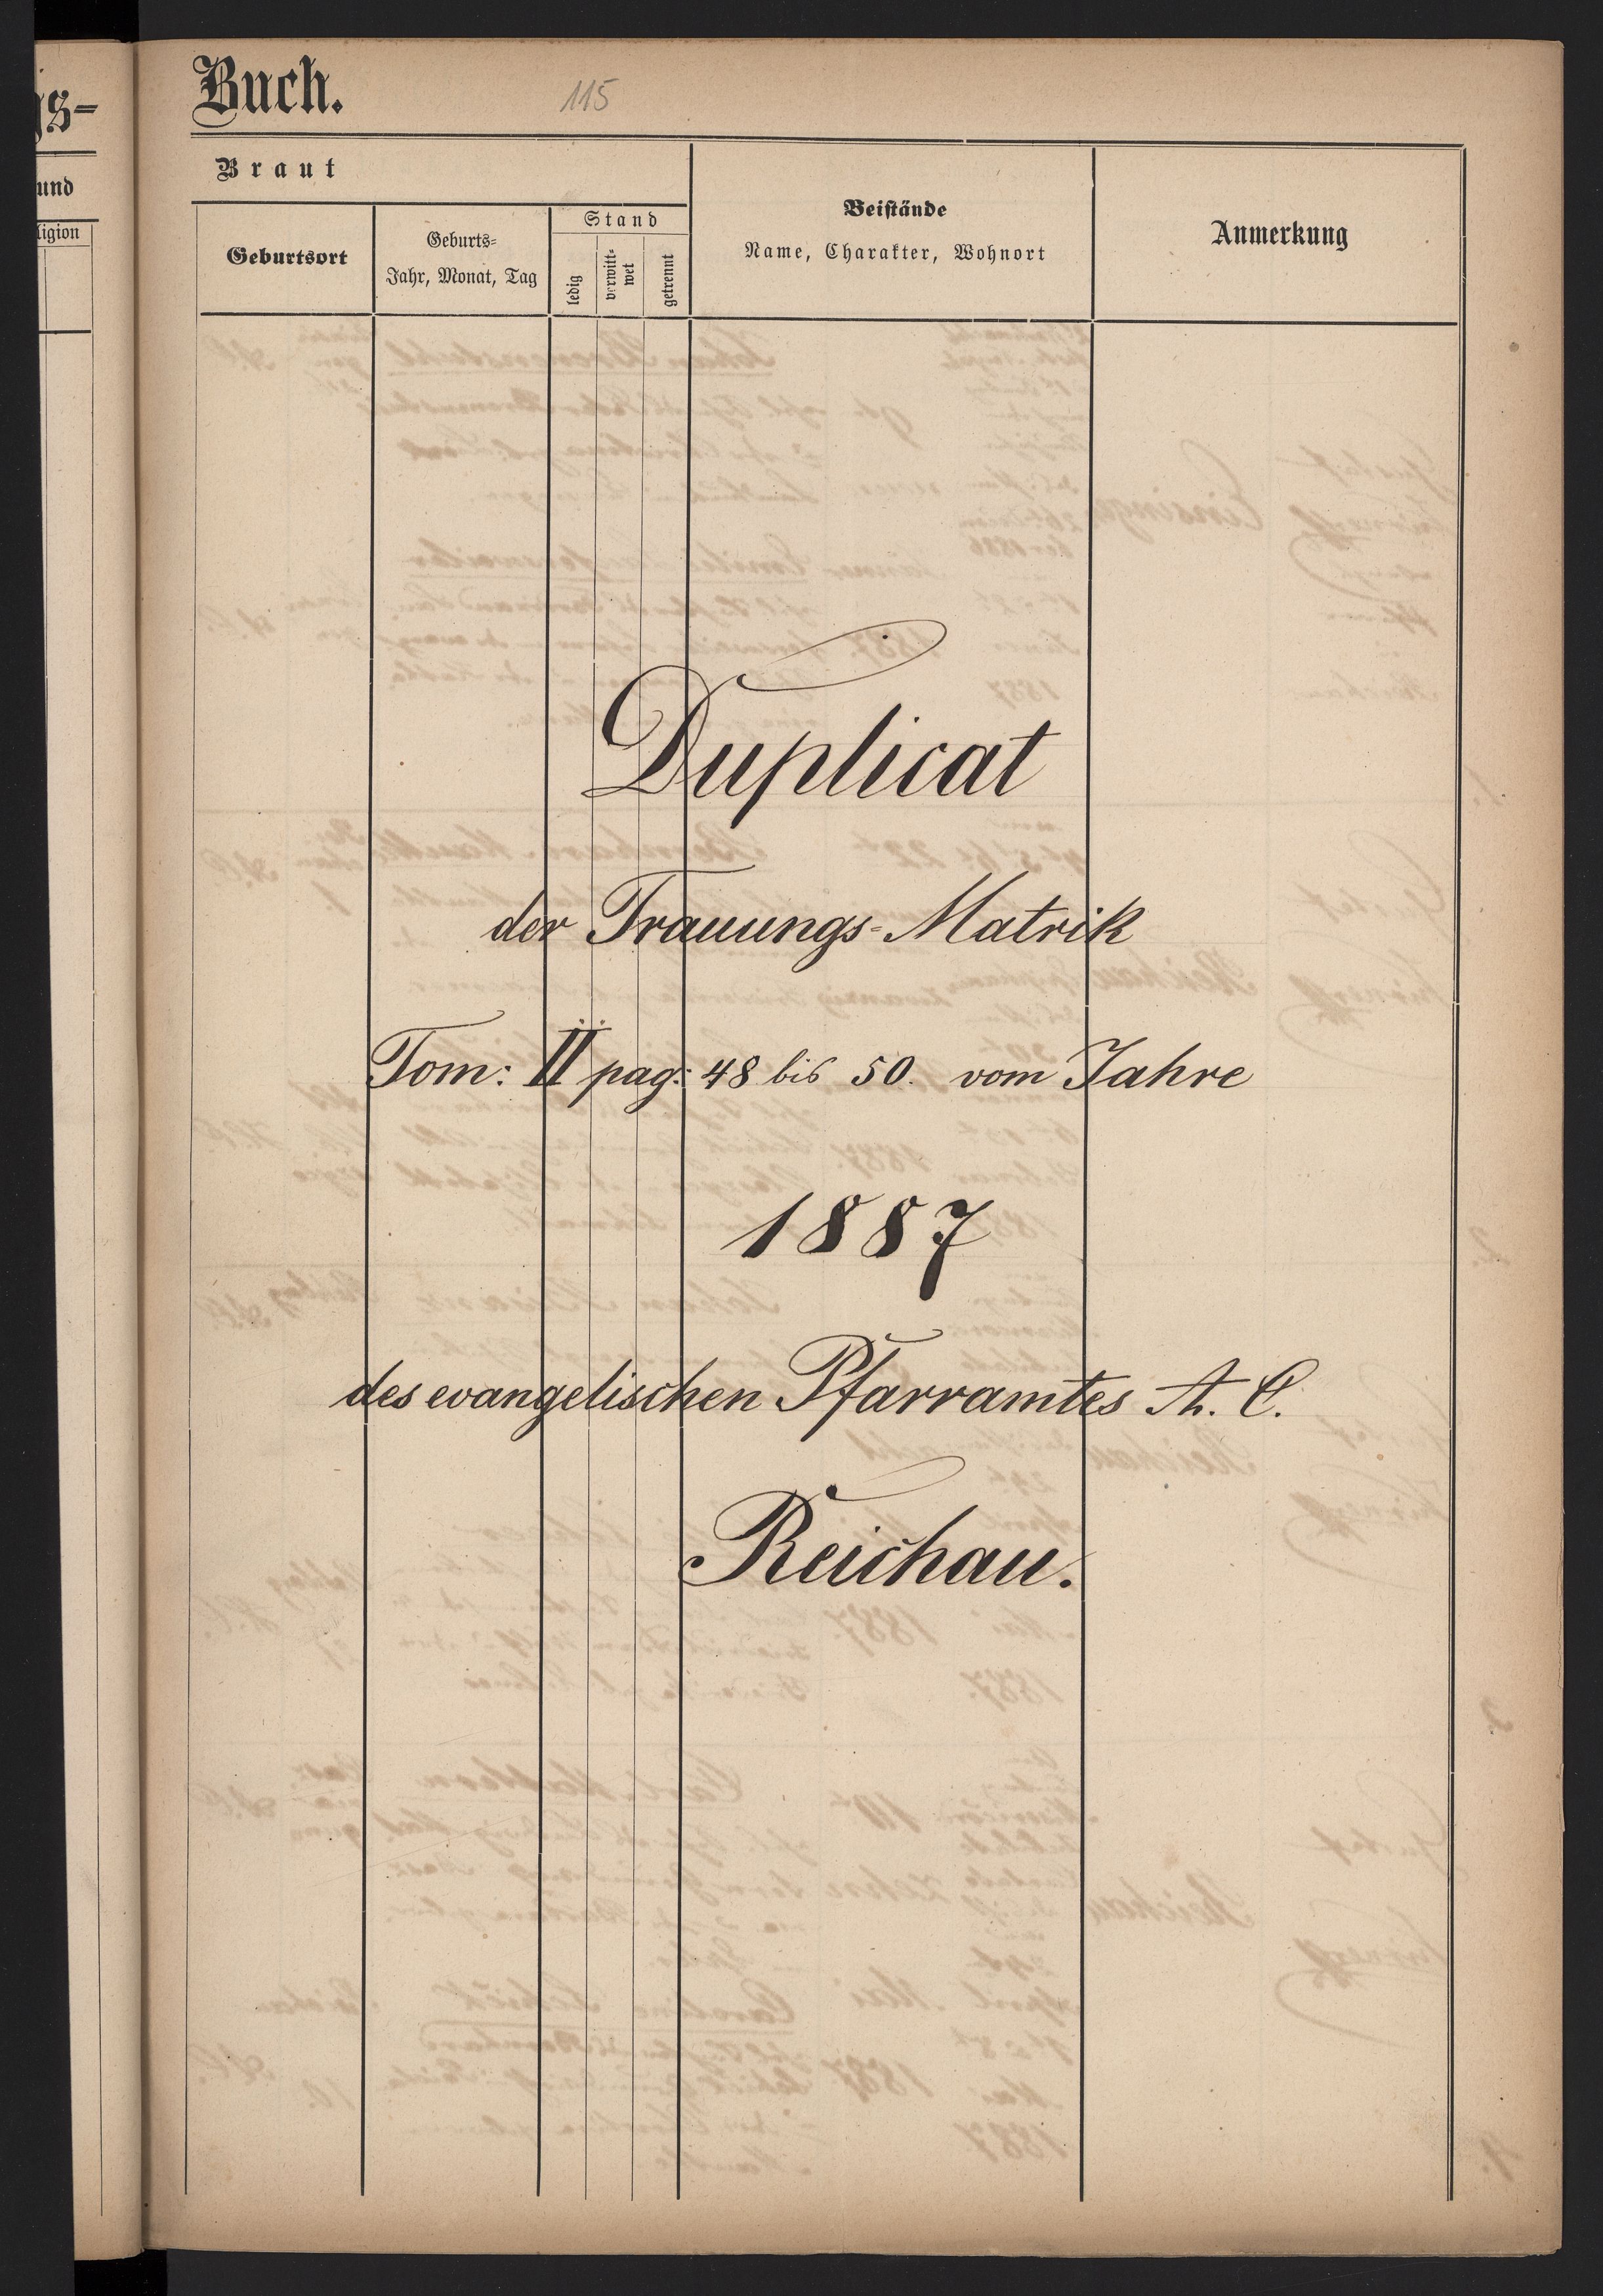 gs-
Buch.
115
und
ligion
Braut
Geburtsort
Geburts-
Jahr, Monat, Tag
Stand
ledig
verwitt-
wet
getrennt
Beistände
Name, Charakter, Wohnort
Anmerkung
Duplicat
der Trauungs-Matrik
Tom: II pag: 48 bis 50. vom Jahre
1887
des evangelischen Pfarramtes A. C.
Reichau.